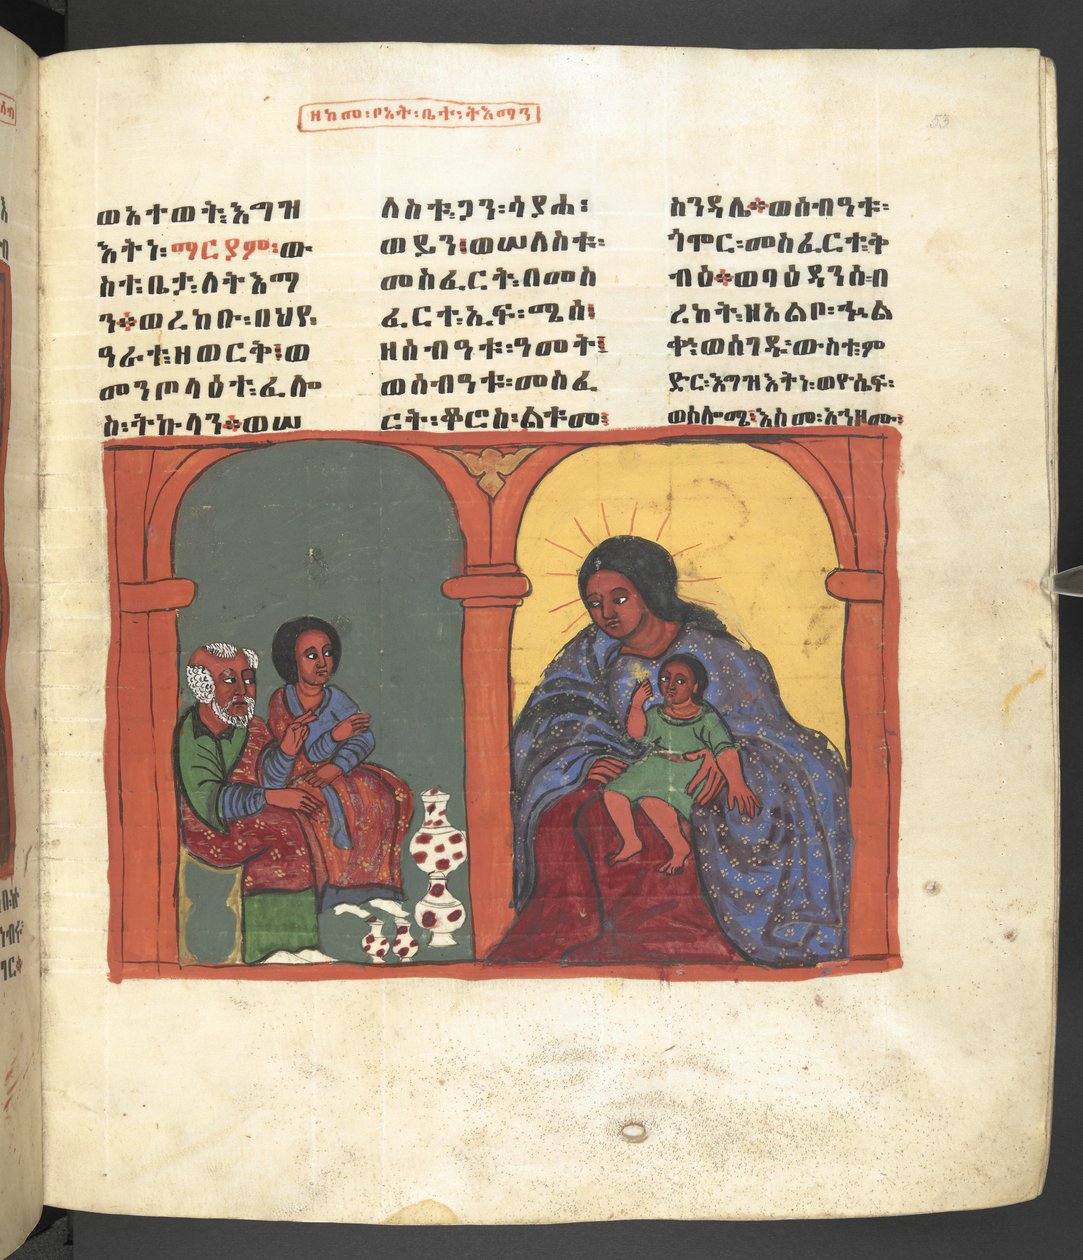 ዘከመ፡ቦአት፡ቤተ፡ትእማን
53
ወአተወት፡እግዝ
እትነ፡ማርያም፡ው
ስተ፡ቤታ፡ለትእማ
ን፨ወረከቡ፡በህየ፡
ዓራተ፡ዘወርቅ፤ወ
መንጦላዕተ፡ፈሎ
ስ፡ትኩላን፨ወሠ
ለስቱ፡ጋን፡ሳያሐ፡
ወይን፤ወሠለስቱ፡
መስፈርት፡በመስ
ፈርተ፡ኢፍ፡ሜስ፤
ዘሰብዓቱ፡ዓመት፤
ወሰብዓቱ፡መስፈ
ርት፡ቆሮስ፡ልቱመ፤
ስንዳሌ፨ወሰብዓቱ፡
ጎሞር፡መስፈርተ፡ት
ብዕ፨ወባዕዳንሰ፡በ
ረከት፡ዘአልቦ፡ኁል
ቀ፤ወሰገዱ፡ውስተ፡ም
ድር፡እግዝእትነ፡ወዮሴፍ፡
ወሰሎሜ፤እስመ፡አንዘሙ፤